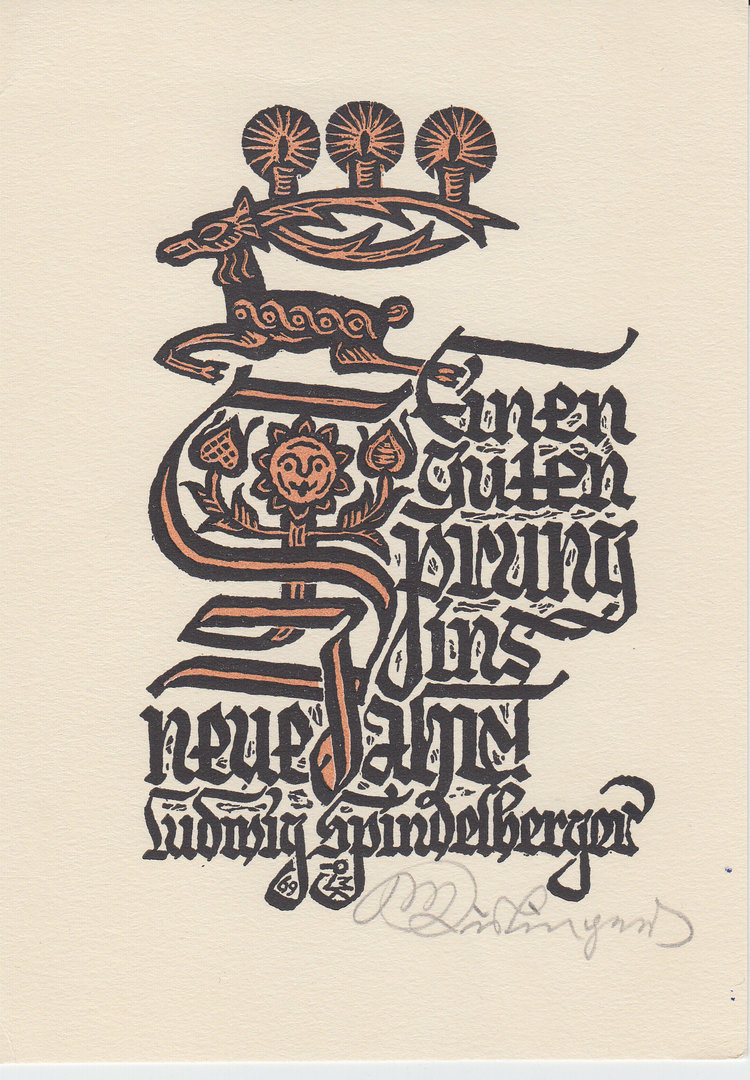 Einen
guten
Sprung
ins
neue Jahr!
Ludwig Spindelberger
69